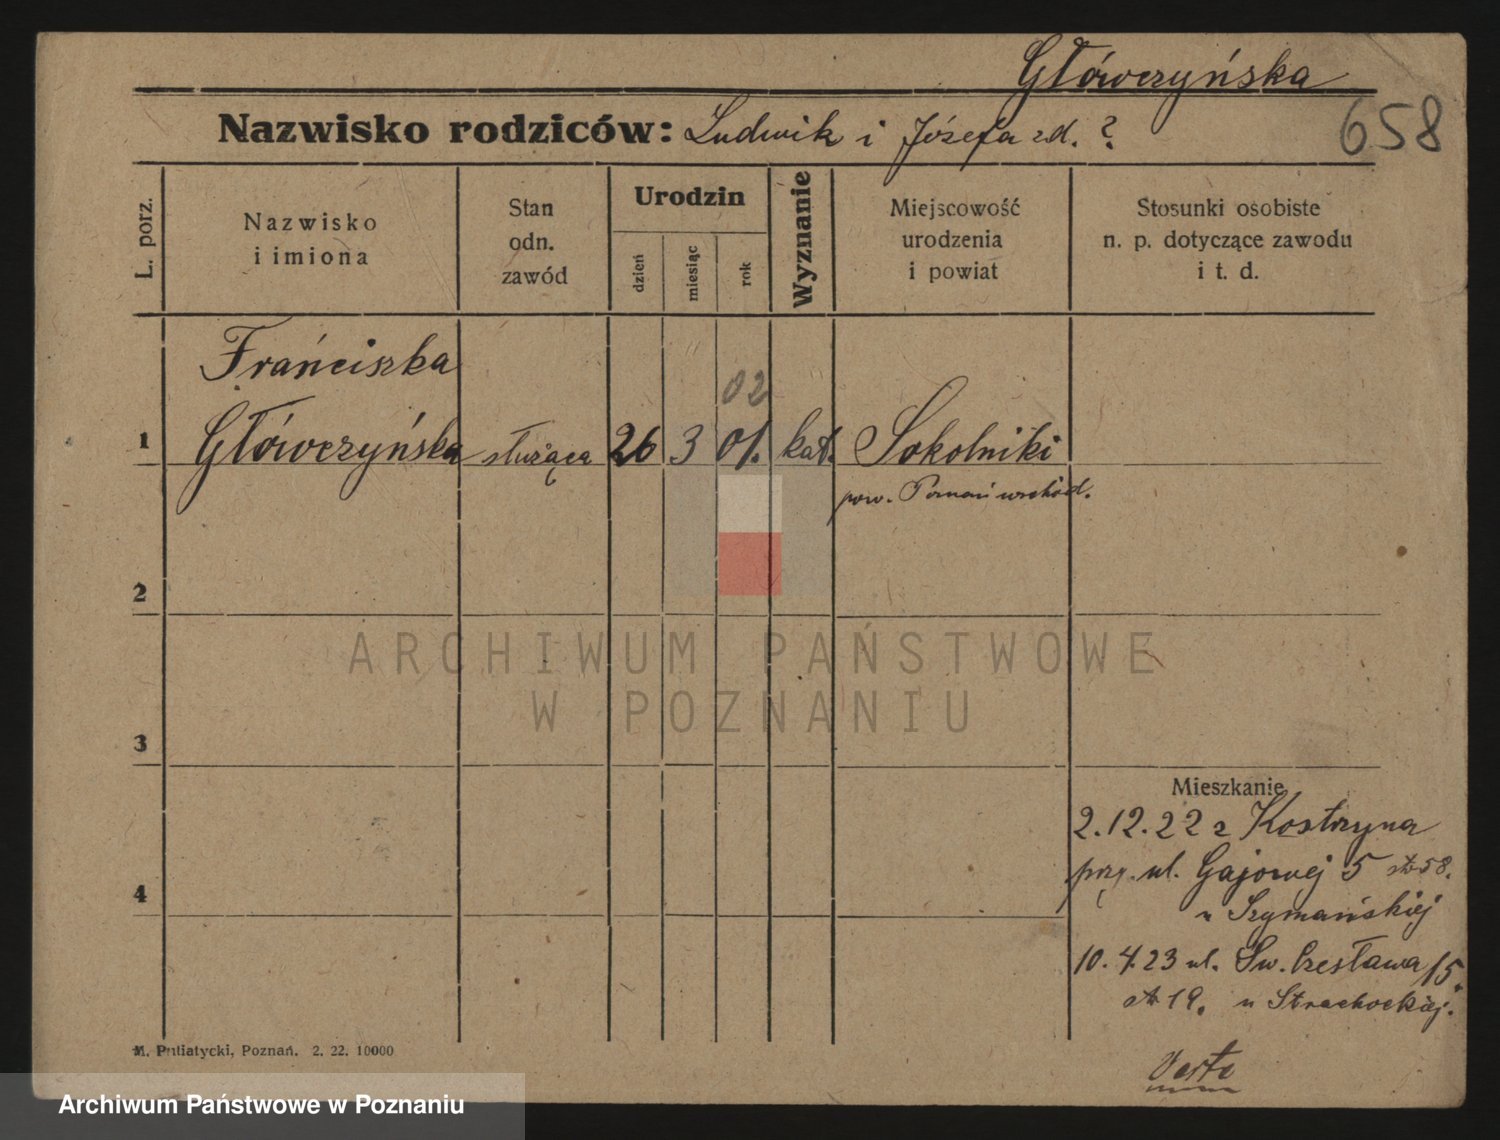 Główczyńska
Nazwisko rodziców: Ludwik i Józefa zd. ?
658
L. porz.
Nazwisko
i imiona
Stan
odn.
zawód
Urodzin
dzień
miesiąc
rok
Wyznanie
Miejscowość
urodzenia
i powiat
Stosunki osobiste
n. p. dotyczące zawodu
i t. d.
Franciszka
02
1 Główczyńska służąca 26 3 01. kat. Sokolniki
pow. Poznań wschód.
2
ARCHIWUM PAŃSTWOWE
W POZNANIU
3
Mieszkanie
2.12.22 z Kostrzyna
przy. ul. Gajowej 5 str 58.
u Szymańskiej
4
10.4.23 ul. Św. Czesława 15.
str 19. u Strachockiej.
Verte
M. Putiatycki, Poznań. 2. 22. 10000
Archiwum Państwowe w Poznaniu